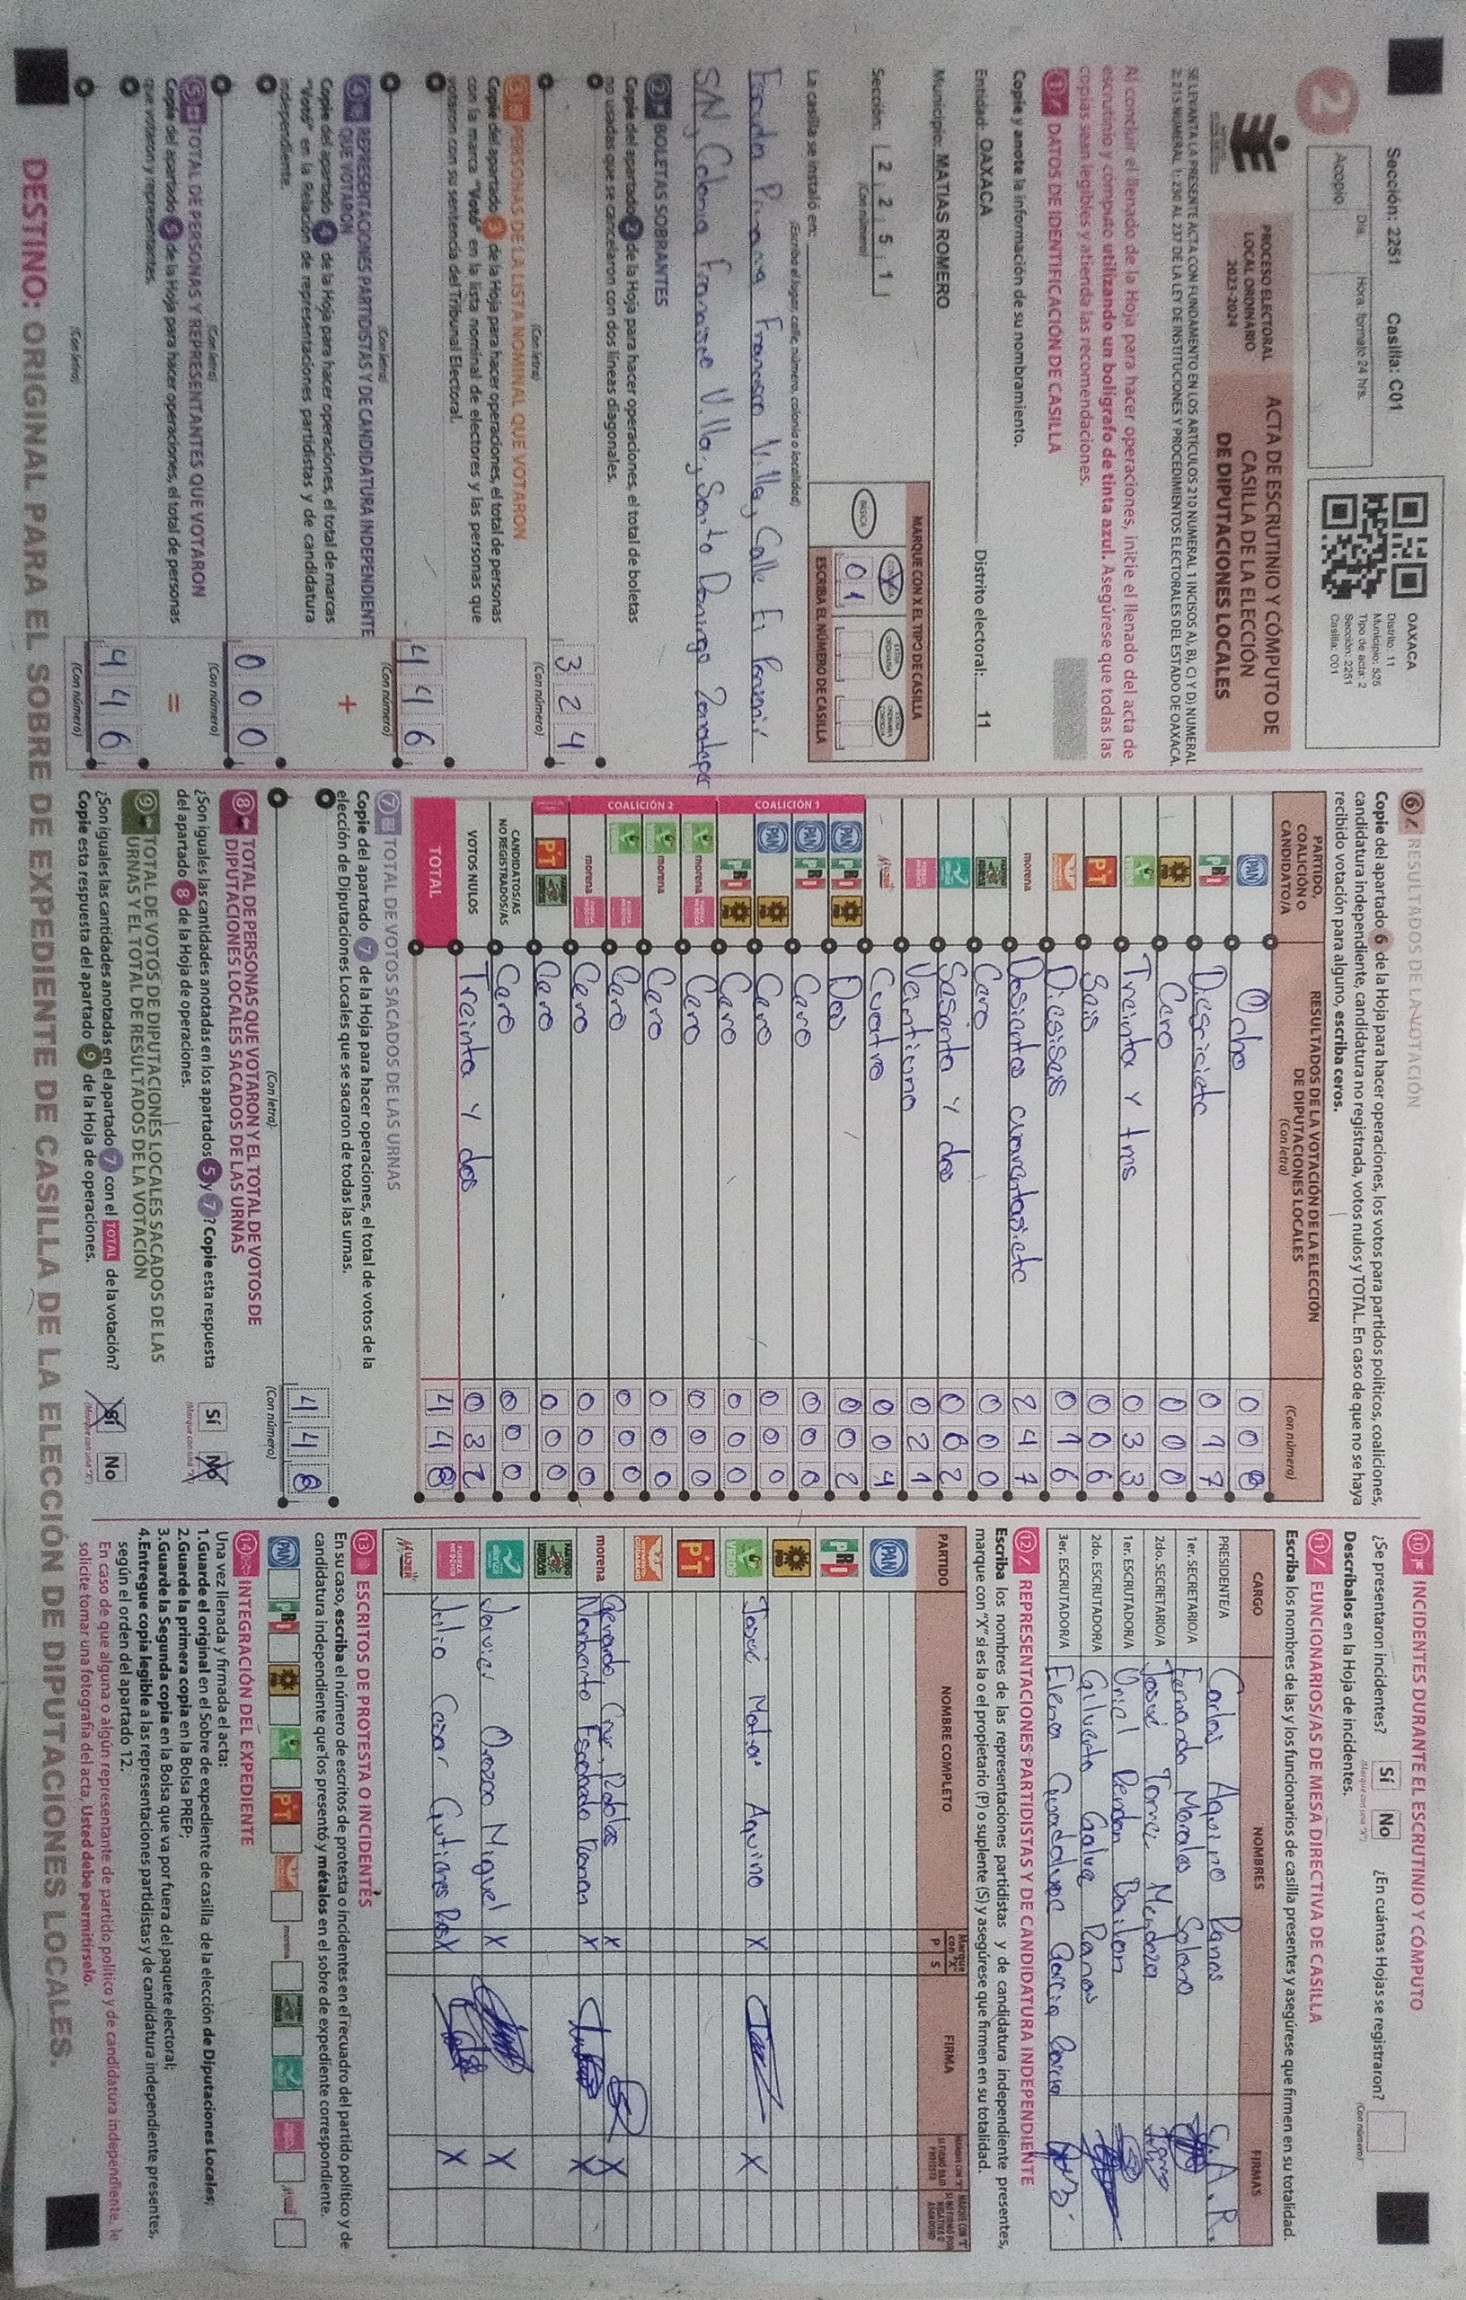 Sección: 2251 Casilla: C01
Día Hora: formato 24 hrs.
Acopio
OAXACA
Distrito: 11
Municipio: 525
Tipo de acta: 2
Sección: 2251
Casilla: C01
2
PROCESO ELECTORAL
LOCAL ORDINARIO
2023-2024
ACTA DE ESCRUTINIO Y CÓMPUTO DE
CASILLA DE LA ELECCIÓN
DE DIPUTACIONES LOCALES
SE LEVANTA LA PRESENTE ACTA CON FUNDAMENTO EN LOS ARTÍCULOS 210 NUMERAL 1 INCISOS A), B), C) Y D) NUMERAL
2; 215 NUMERAL 1; 230 AL 237 DE LA LEY DE INSTITUCIONES Y PROCEDIMIENTOS ELECTORALES DEL ESTADO DE OAXACA.
Al concluir el llenado de la Hoja para hacer operaciones, inicie el llenado del acta de
escrutinio y cómputo utilizando un bolígrafo de tinta azul. Asegúrese que todas las
copias sean legibles y atienda las recomendaciones.
1 DATOS DE IDENTIFICACIÓN DE CASILLA
Copie y anote la información de su nombramiento.
Entidad: OAXACA Distrito electoral: 11
Municipio: MATIAS ROMERO
Sección: 2 2 5 1
(Con número)
MARQUE CON X EL TIPO DE CASILLA
BÁSICA
ESCRIBA EL NÚMERO DE CASILLA
0 1
La casilla se instaló en:
(Escriba el lugar, calle, número, colonia o localidad)
Escuela Primaria Francisco Villa, Calle El Porvenir
S/N, Colonia Francisco Villa, Santo Domingo Zanatepec
2 BOLETAS SOBRANTES
Copie del apartado 2 de la Hoja para hacer operaciones, el total de boletas
no usadas que se cancelaron con dos líneas diagonales.
3 2 4
(Con letra) (Con número)
3 PERSONAS DE LA LISTA NOMINAL QUE VOTARON
Copie del apartado 3 de la Hoja para hacer operaciones, el total de personas
con la marca "Votó" en la lista nominal de electores y las personas que
votaron con su sentencia del Tribunal Electoral.
4 4 6
(Con letra) (Con número)
4 REPRESENTACIONES PARTIDISTAS Y DE CANDIDATURA INDEPENDIENTE
QUE VOTARON
+
Copie del apartado 4 de la Hoja para hacer operaciones, el total de marcas
"Votó" en la Relación de representaciones partidistas y de candidatura
independiente.
0 0 0
(Con letra) (Con número)
5 TOTAL DE PERSONAS Y REPRESENTANTES QUE VOTARON
=
Copie del apartado 5 de la Hoja para hacer operaciones, el total de personas
que votaron y representantes.
4 4 6
(Con letra) (Con número)
6 RESULTADOS DE LA VOTACIÓN
Copie del apartado 6 de la Hoja para hacer operaciones, los votos para partidos políticos, coaliciones,
candidatura independiente, candidatura no registrada, votos nulos y TOTAL. En caso de que no se haya
recibido votación para alguno, escriba ceros.
PARTIDO,
COALICIÓN O
CANDIDATO/A
RESULTADOS DE LA VOTACIÓN DE LA ELECCIÓN
DE DIPUTACIONES LOCALES
(Con letra)
(Con número)
PAN Ocho 0 0 8
PRI Diesiciete 0 1 7
PRD Cero 0 0 0
VERDE Treinta y tres 0 3 3
PT Seis 0 0 6
Diesiseis 0 1 6
morena Dosientos cuarentasiete 2 4 7
Cero 0 0 0
Sesenta y dos 0 6 2
Veintiuno 0 2 1
MUJER Cuatro 0 0 4
COALICIÓN 1
PAN PRI PRD Dos 0 0 2
PAN PRI Cero 0 0 0
PAN PRD Cero 0 0 0
PRI PRD Cero 0 0 0
COALICIÓN 2
morena Cero 0 0 0
morena Cero 0 0 0
Cero 0 0 0
morena Cero 0 0 0
PT Cero 0 0 0
CANDIDATOS/AS
NO REGISTRADOS/AS Cero 0 0 0
VOTOS NULOS Treinta y dos 0 3 2
TOTAL 4 4 8
7 TOTAL DE VOTOS SACADOS DE LAS URNAS
Copie del apartado 7 de la Hoja para hacer operaciones, el total de votos de la
elección de Diputaciones Locales que se sacaron de todas las urnas.
4 4 8
(Con letra) (Con número)
8 TOTAL DE PERSONAS QUE VOTARON Y EL TOTAL DE VOTOS DE
DIPUTACIONES LOCALES SACADOS DE LAS URNAS
¿Son iguales las cantidades anotadas en los apartados 5 y 7? Copie esta respuesta
del apartado 8 de la Hoja de operaciones.
Sí No
(Marque con una "X")
9 TOTAL DE VOTOS DE DIPUTACIONES LOCALES SACADOS DE LAS
URNAS Y EL TOTAL DE RESULTADOS DE LA VOTACIÓN
¿Son iguales las cantidades anotadas en el apartado 7 con el TOTAL de la votación?
Copie esta respuesta del apartado 9 de la Hoja de operaciones.
Sí No
(Marque con una "X")
10 INCIDENTES DURANTE EL ESCRUTINIO Y CÓMPUTO
¿Se presentaron incidentes? Sí No ¿En cuántas Hojas se registraron?
(Marque con una "X") (Con número)
Descríbalos en la Hoja de incidentes.
11 FUNCIONARIOS/AS DE MESA DIRECTIVA DE CASILLA
Escriba los nombres de las y los funcionarios de casilla presentes y asegúrese que firmen en su totalidad.
CARGO NOMBRES FIRMAS
PRESIDENTE/A Carlos Aquino Ramos C.A.R.
1er. SECRETARIO/A Fernando Morales Solano
2do. SECRETARIO/A Jossé Torres Mendoza
1er. ESCRUTADOR/A Uriel Rendon Bailon
2do. ESCRUTADOR/A Gilberto Galvez Ramos
3er. ESCRUTADOR/A Elena Guadalupe Garcia Garcia
12 REPRESENTACIONES PARTIDISTAS Y DE CANDIDATURA INDEPENDIENTE
Escriba los nombres de las representaciones partidistas y de candidatura independiente presentes,
marque con "X" si es la o el propietario (P) o suplente (S) y asegúrese que firmen en su totalidad.
PARTIDO NOMBRE COMPLETO Marque con "X" P S FIRMA
PAN
PRI
PRD
VERDE José Mator Aquino X X
PT
morena Gerardo Cruz Robles X X
Normando Escobedo Roman X X
Javier Orozco Miguel X X
Julio Cesar Gutierres X X
MUJER
13 ESCRITOS DE PROTESTA O INCIDENTES
En su caso, escriba el número de escritos de protesta o incidentes en el recuadro del partido político y de
candidatura independiente que los presentó y métalos en el sobre de expediente correspondiente.
PAN PRI PRD VERDE PT morena MUJER
14 INTEGRACIÓN DEL EXPEDIENTE
Una vez llenada y firmada el acta:
1.Guarde el original en el Sobre de expediente de casilla de la elección de Diputaciones Locales;
2.Guarde la primera copia en la Bolsa PREP;
3.Guarde la Segunda copia en la Bolsa que va por fuera del paquete electoral;
4.Entregue copia legible a las representaciones partidistas y de candidatura independiente presentes,
según el orden del apartado 12.
En caso de que alguna o algún representante de partido político y de candidatura independiente, le
solicite tomar una fotografía del acta, Usted debe permitírselo.
DESTINO: ORIGINAL PARA EL SOBRE DE EXPEDIENTE DE CASILLA DE LA ELECCIÓN DE DIPUTACIONES LOCALES.